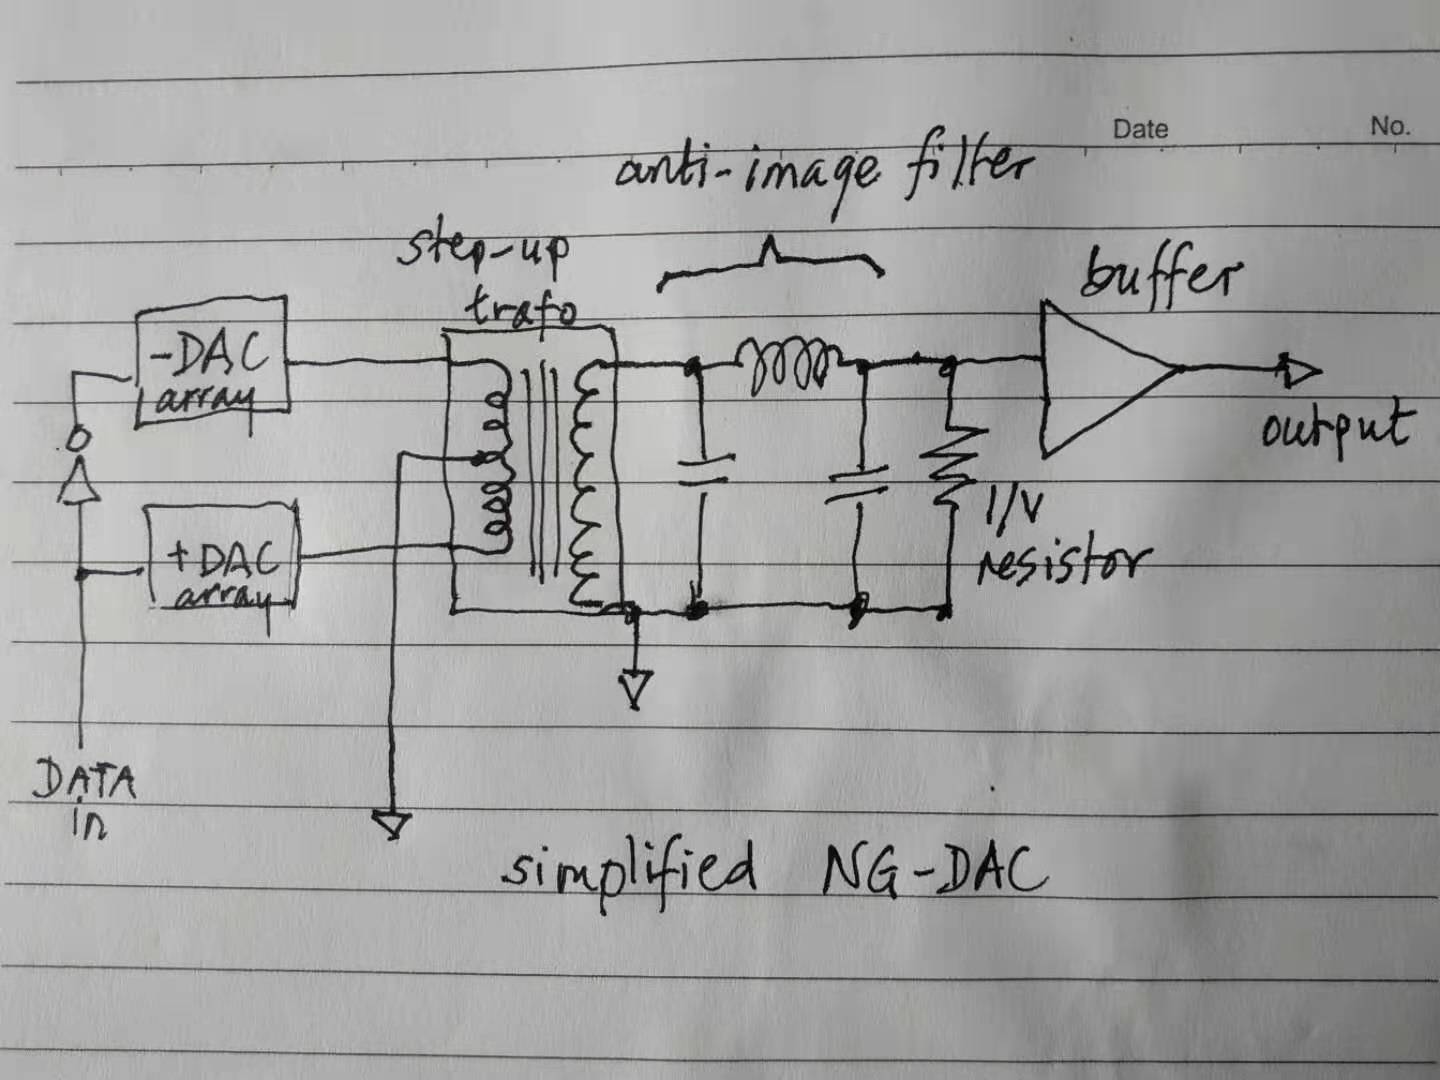 Date
No.
anti-image filter
step-up
trafo
buffer
-DAC
array
output
I/V
resistor
+DAC
array
DATA
in
simplified NG-DAC